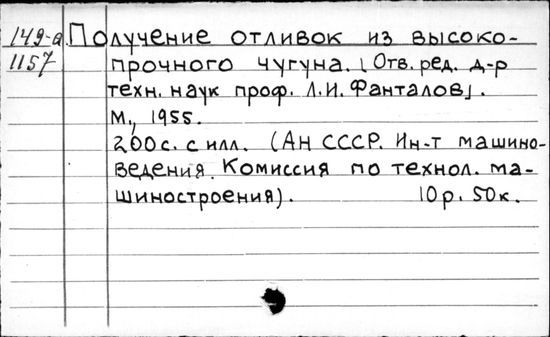 149-а Получение отливок из высоко-
1157 прочного чугуна. [Отв. ред. д-р
техн. наук проф. Л.И. Фанталов].
М., 1955.
200с. с илл. (АН СССР. Ин-т машино-
ведения. Комиссия по технол. ма-
шиностроения). 10р. 50к.